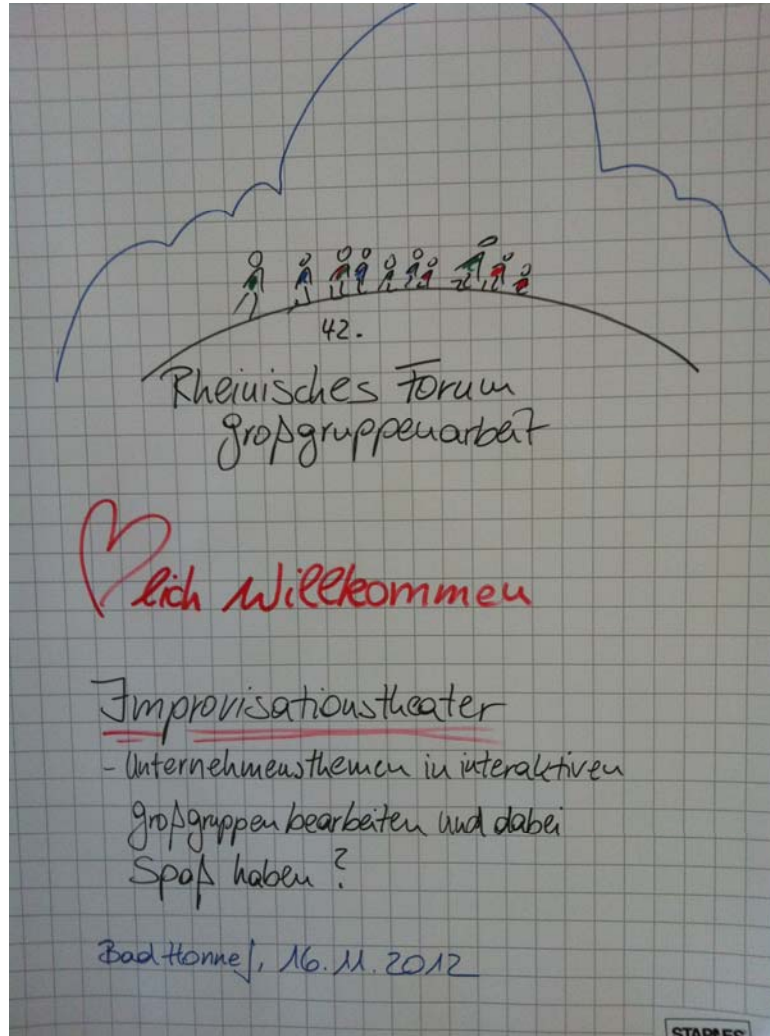 42.
Rheinisches Forum
Großgruppenarbeit
lich Willkommen
Improvisationstheater
- Unternehmensthemen in interaktiven
Großgruppen bearbeiten und dabei
Spaß haben ?
Bad Honnef, 16.11.2012
STAPLES